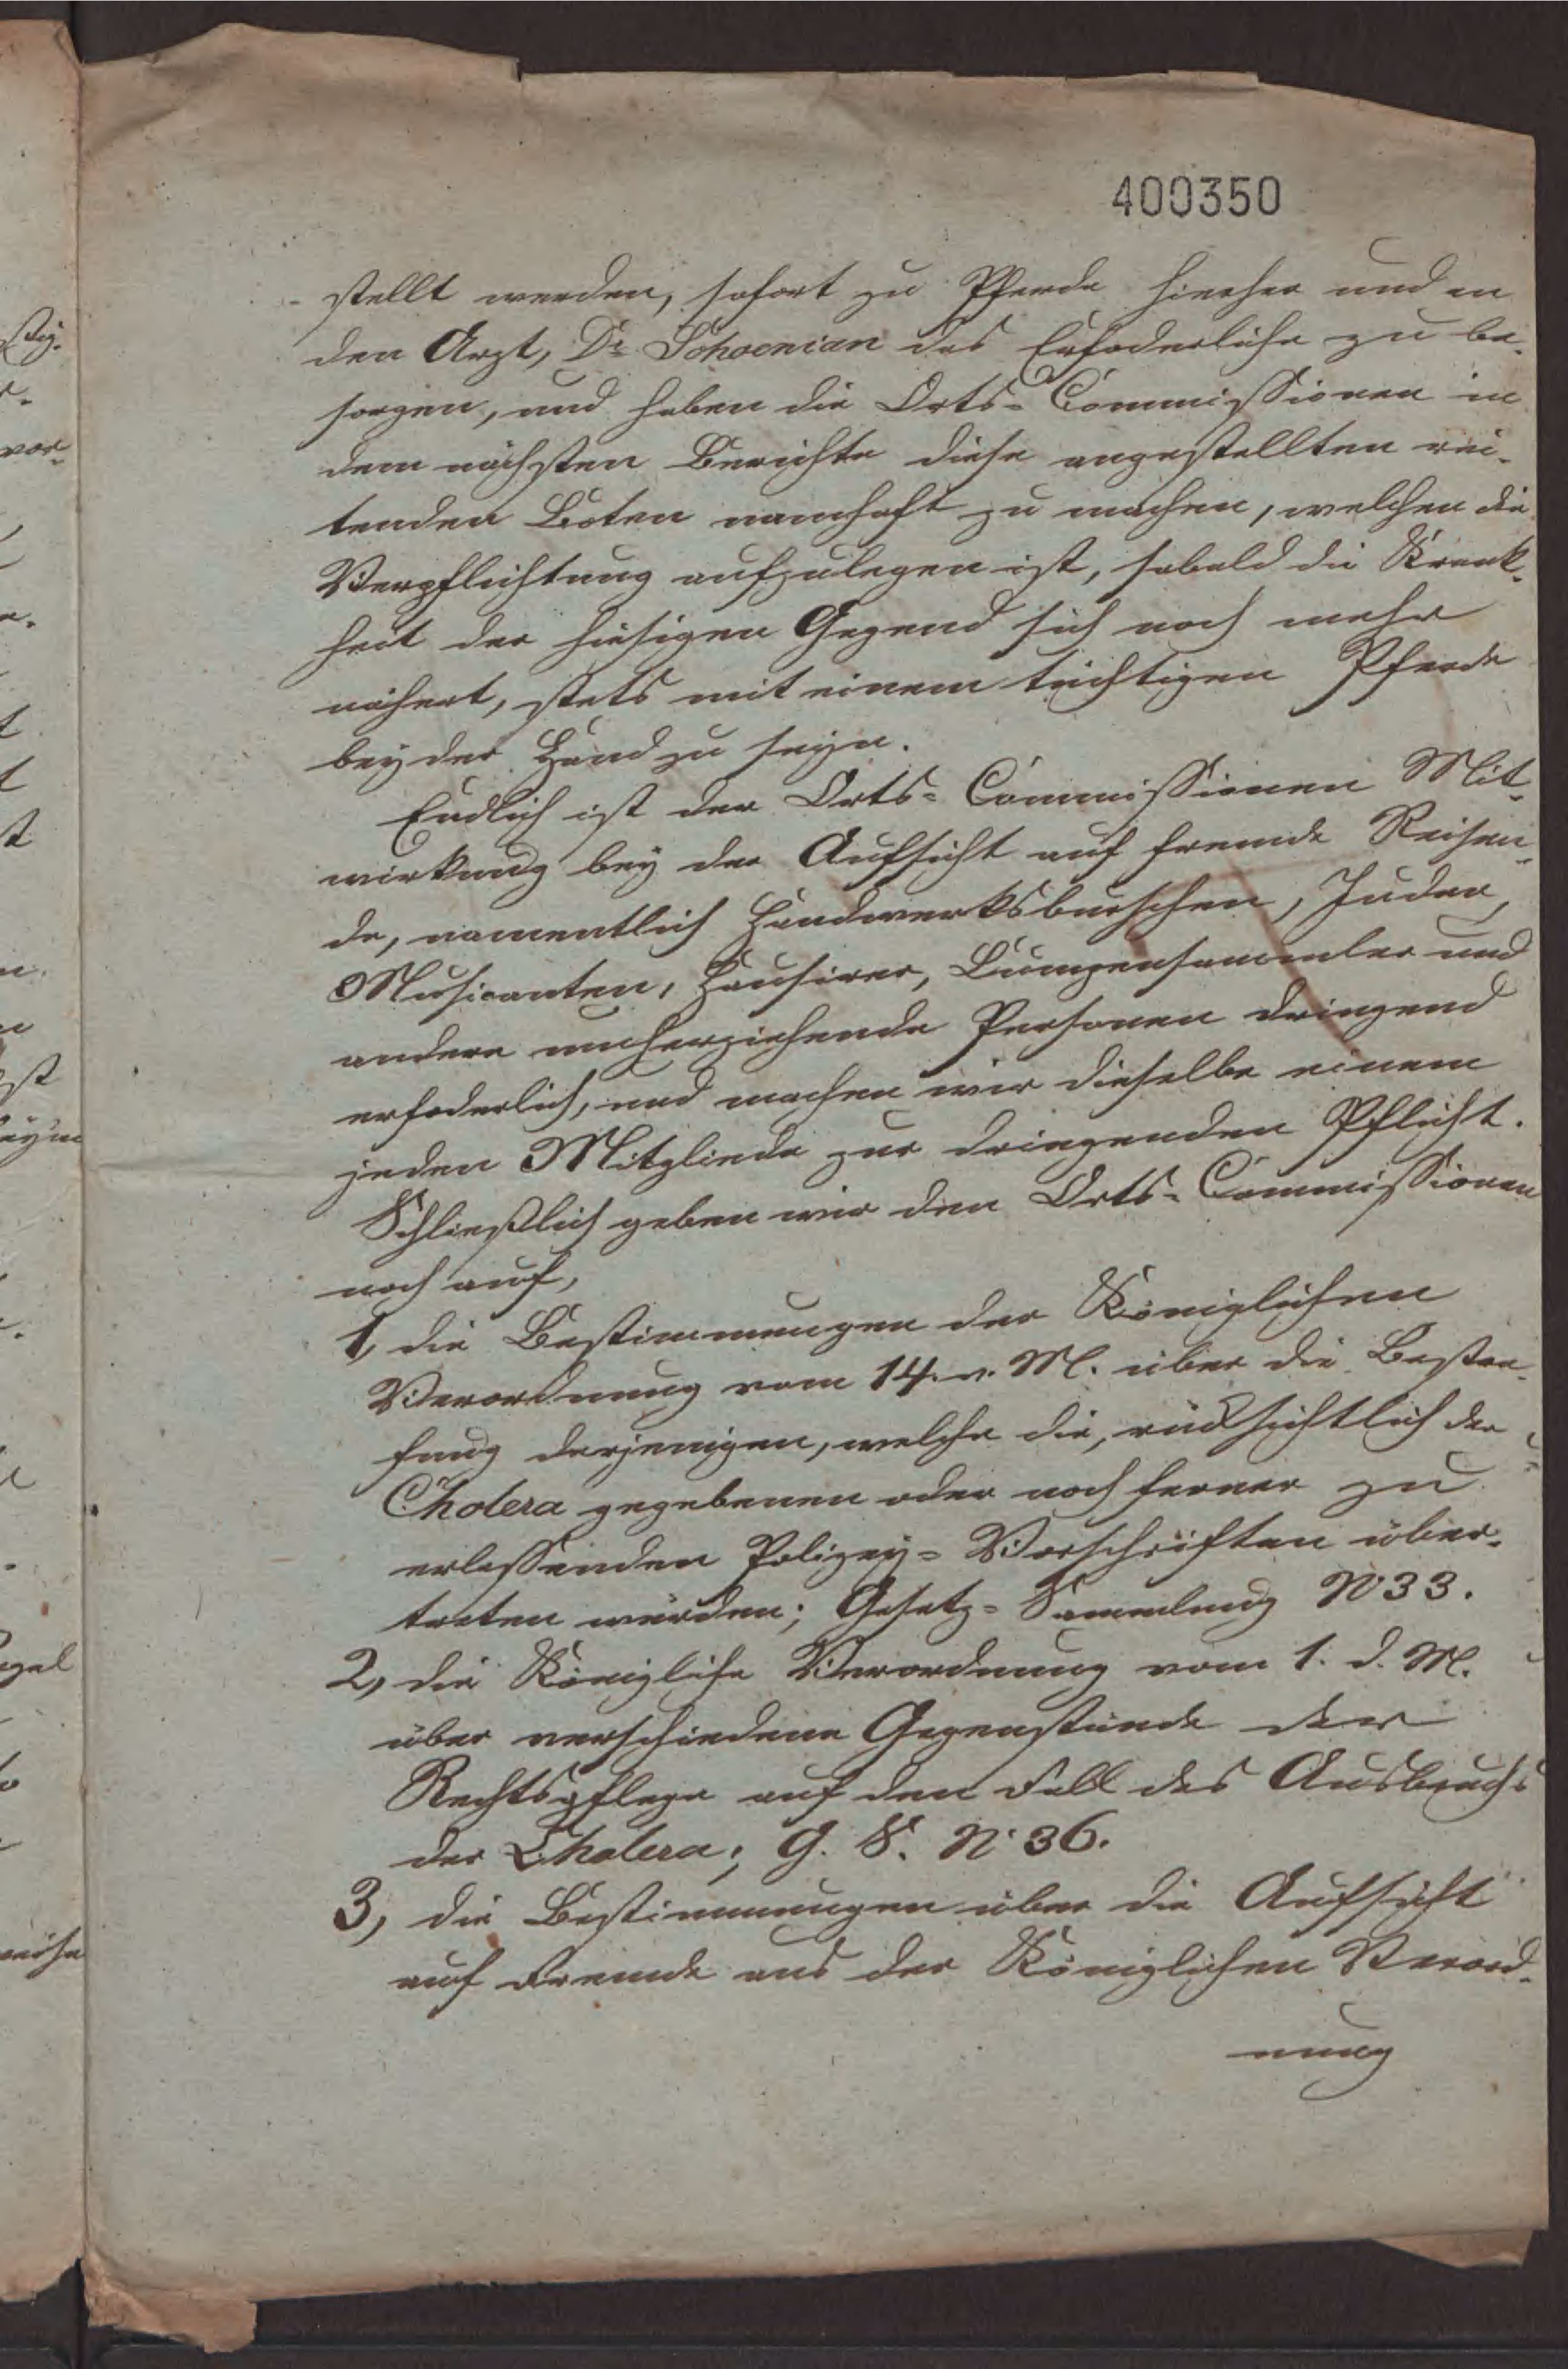 400350
stellt werden, sofort zu Pferde hierher und an
den Arzt, Dr Schoenian das Erforderliche zu be-
sorgen, und haben die Orts-Commissionen in
dem nächsten Berichte diese angestellten rei-
tenden Boten namhaft zu machen, welchen die
Verpflichtung aufzulegen ist, sobald die Krank-
heit der hiesigen Gegend sich noch mehr
nähert, stets mit einem tüchtigen Pferde
bey der Hand zu seyn.
Endlich ist der Orts-Commissionen Mit-
wirkung bey der Aufsicht auf fremde Reisen-
de, namentlich Handwerksburschen, Juden,
Musicanten, Hausirer, Lumpensammler und
andere umherziehende Personen dringend
erfoderlich, und machen wir dieselbe einem
jeden Mitgliede zur dringenden Pflicht.
Schließlich geben wir den Orts-Commissionen
noch auf,
1, die Bestimmungen der Königlichen
Verordnung vom 14. v. M. über die Bestra-
fung derjenigen, welche die, rücksichtlich der
Cholera gegebenen oder noch ferner zu
erlassenden Polizey-Vorschriften über-
treten würden; Gesetz-Sammlung No 33.
2, die Königliche Verordnung vom 1. d. M.
über verschiedene Gegenstände der
Rechtspflege auf den Fall des Ausbruchs
der Cholera; G. S. No 36.
3, die Bestimmungen über die Aufsicht
auf Fremde aus der Königlichen Verord-
nung